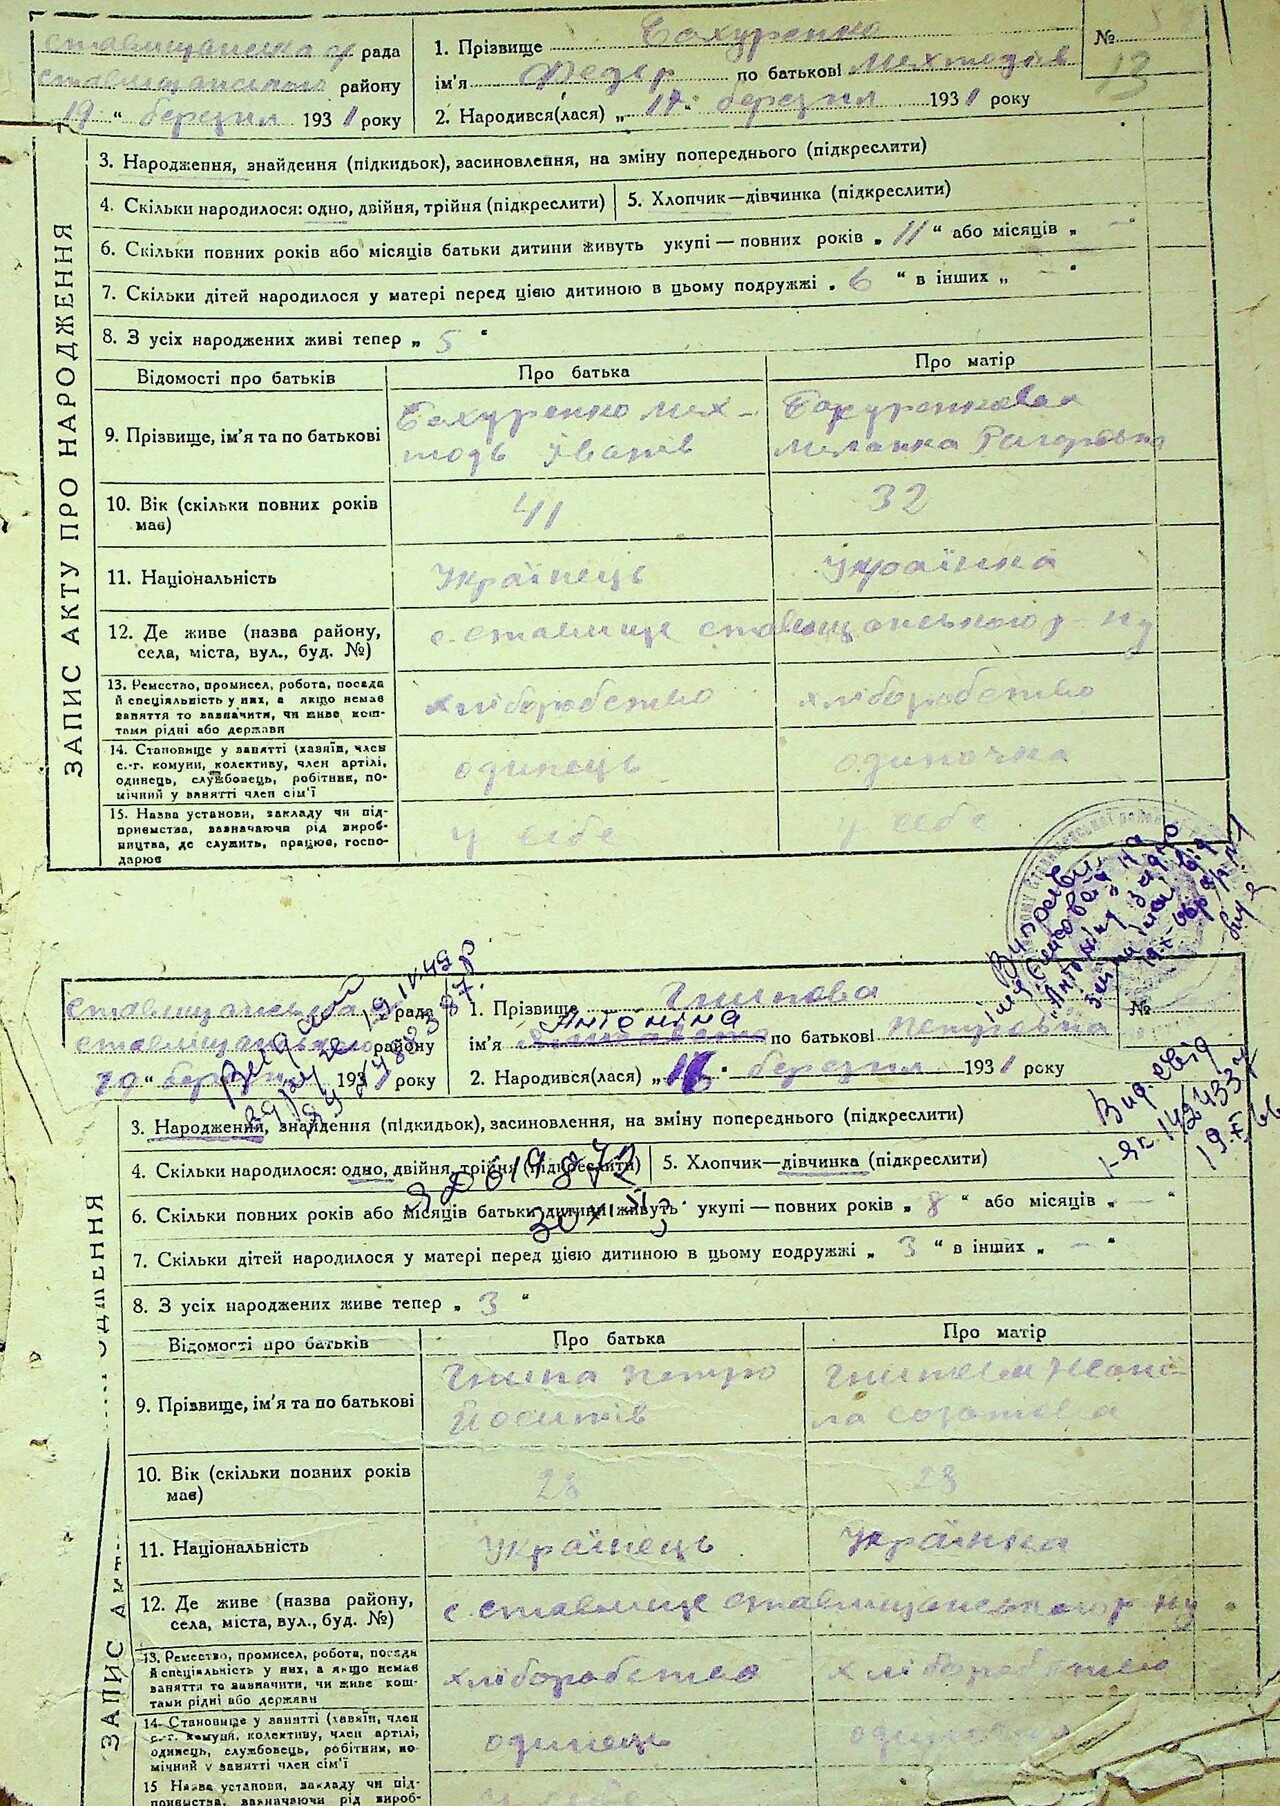 ставищанська рада
ставищанського району
19 " березня 1931 року
1. Прізвище Бахуренко
ім'я Федер по батькові Мехтодів
2. Народився(лася) „ 17 " березня 1931 року
№ 13
ЗАПИС АКТУ ПРО НАРОДЖЕННЯ
3. Народження, знайдення (підкидьок), засиновлення, на зміну попереднього (підкреслити)
4. Скільки народилося: одно, двійня, трійня (підкреслити) 5. Хлопчик—дівчинка (підкреслити)
6. Скільки повних років або місяців батьки дитини живуть укупі — повних років „ 11 " або місяців „ — "
7. Скільки дітей народилося у матері перед цією дитиною в цьому подружжі „ 6 " в інших „ — "
8. З усіх народжених живі тепер „ 5 "
Відомості про батьків Про батька Про матір
9. Прізвище, ім'я та по батькові Бахуренко Мех- Бахуренкова
тодь Іванів Меланка
10. Вік (скільки повних років має) 41 32
11. Національність Українець Українка
12. Де живе (назва району, села, міста, вул., буд. №) с. Ставище ставищанського р-ну
13. Ремество, промисел, робота, посада й спеціяльність у них, а якщо немає заняття то зазначити, чи живе коштами рідні або держави хліборобство хліборобство
14. Становище у занятті (хазяїн, член с.-г. комуни, колективу, член артілі, одинець, службовець, робітник, помічний у занятті член сім'ї одинець одиночка
15. Назва установи, закладу чи підприємства, зазначаючи рід виробництва, де служить, працює, господарює у себе у себе
ставищанська рада
ставищанського району
19 " березня 1931 року
1. Прізвище Гнипова
Антоніна
ім'я по батькові Петровна
2. Народився(лася) „ 16 " березня 1931 року
№
Вид. свід
1-яг 1424337
19.X.66
ЯЮ 619872
3. Народження, знайдення (підкидьок), засиновлення, на зміну попереднього (підкреслити)
4. Скільки народилося: одно, двійня, трійня (підкреслити) 5. Хлопчик—дівчинка (підкреслити)
6. Скільки повних років або місяців батьки дитини живуть укупі — повних років „ 8 " або місяців „ — "
7. Скільки дітей народилося у матері перед цією дитиною в цьому подружжі „ 3 " в інших „ — "
8. З усіх народжених живе тепер „ 3 "
Відомості про батьків Про батька Про матір
9. Прізвище, ім'я та по батькові Гнипа Петро
Йосипів
10. Вік (скільки повних років має) 28 28
11. Національність Українець Українка
12. Де живе (назва району, села, міста, вул., буд. №) с. Ставище Ставищанського р-ну
13. Ремество, промисел, робота, посада й спеціяльність у них, а якщо немає заняття то зазначити, чи живе коштами рідні або держави хліборобство хліборобство
14. Становище у занятті (хазяїн, член с.-г. комуни, колективу, член артілі, одинець, службовець, робітник, помічний у занятті член сім'ї одинець
15 Назва установи, закладу чи підприємства, зазначаючи рід вироб- у себе